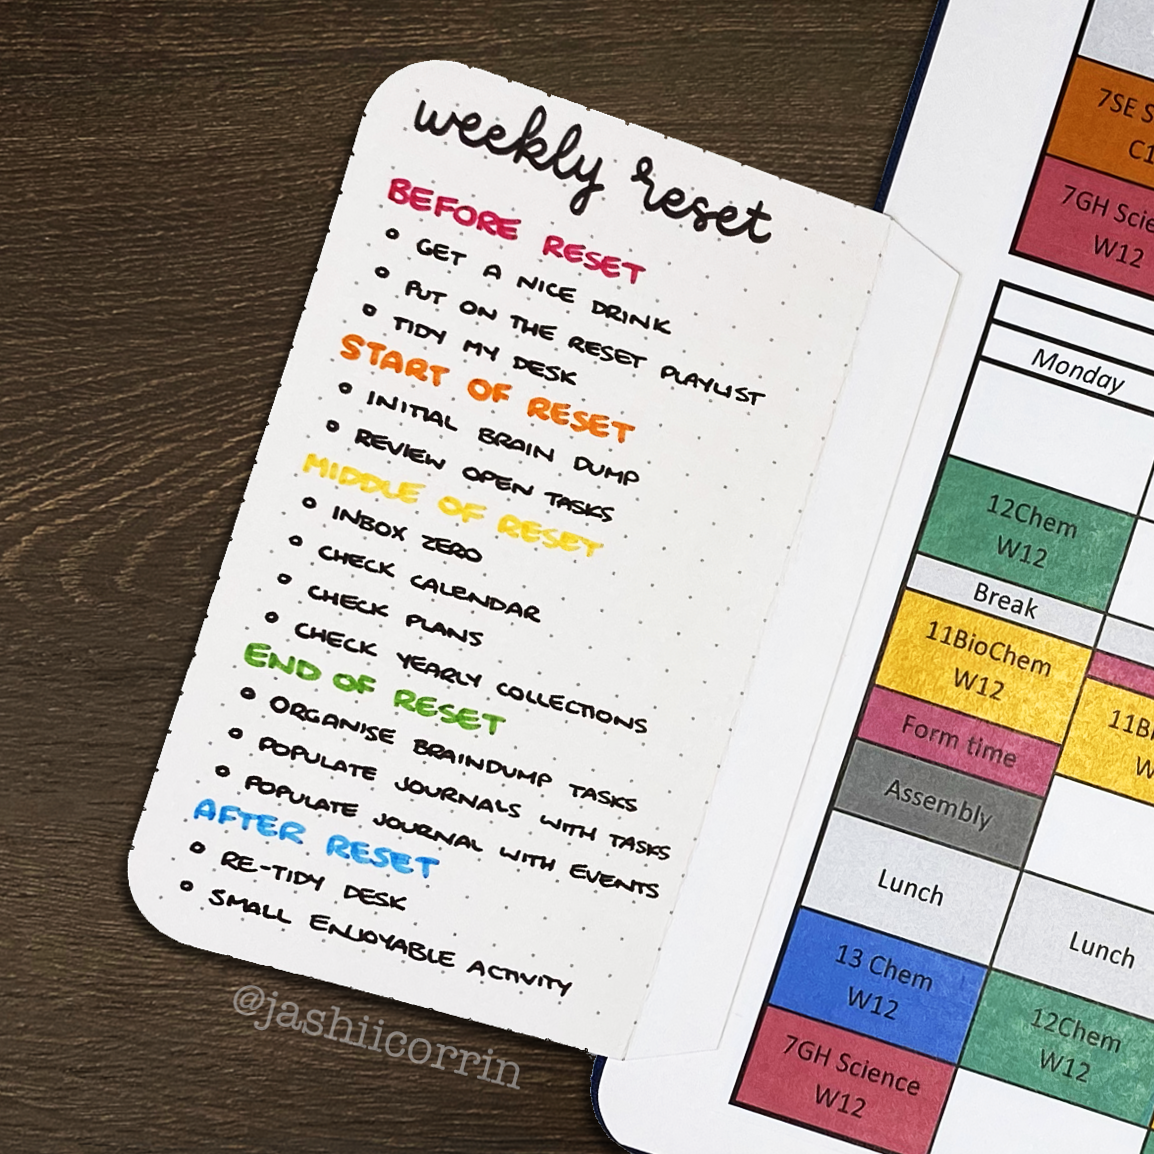 weekly reset
BEFORE RESET
GET A NICE DRINK
PUT ON THE RESET PLAYLIST
TIDY MY DESK
START OF RESET
INITIAL BRAIN DUMP
REVIEW OPEN TASKS
MIDDLE OF RESET
INBOX ZERO
CHECK CALENDAR
CHECK PLANS
CHECK YEARLY COLLECTIONS
END OF RESET
ORGANISE BRAINDUMP TASKS
POPULATE JOURNALS WITH TASKS
POPULATE JOURNAL WITH EVENTS
AFTER RESET
RE-TIDY DESK
SMALL ENJOYABLE ACTIVITY
@jashiicorrin
7SE
7GH
W12
Monday
12Chem
W12
Break
11BioChem
W12
Form time
Assembly
Lunch
13 Chem
W12
7GH Science
W12
Lunch
12Chem
W12